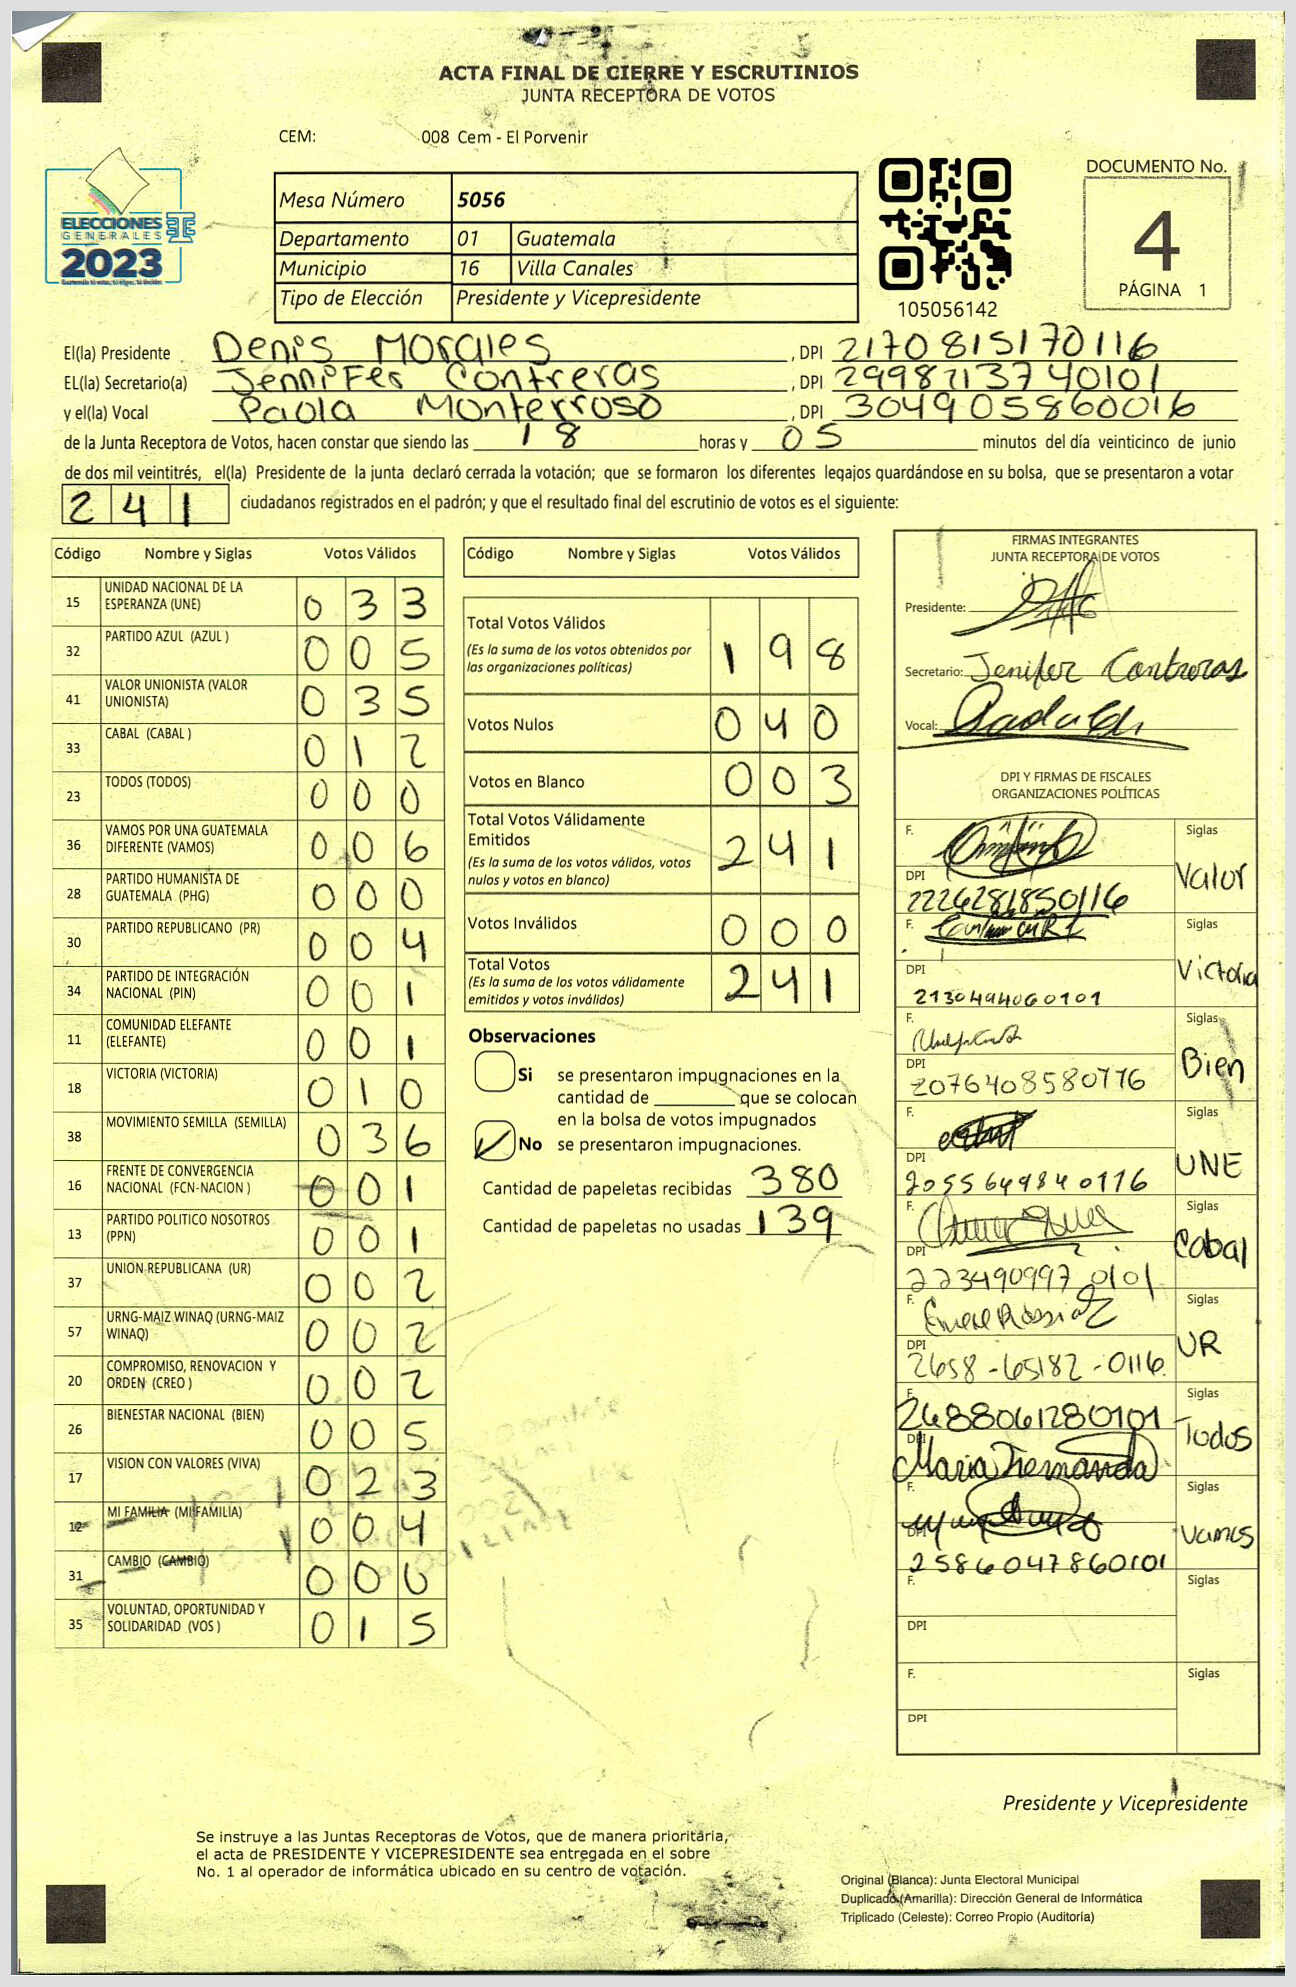 ACTA FINAL DE CIERRE Y ESCRUTINIOS
JUNTA RECEPTORA DE VOTOS
CEM: 008 Cem - El Porvenir
ELECCIONES
GENERALES
2023
Mesa Número 5056
Departamento 01 Guatemala
Municipio 16 Villa Canales
Tipo de Elección Presidente y Vicepresidente
105056142
DOCUMENTO No.
4
PÁGINA 1
El(la) Presidente Denis Morales, DPI 2170815170116
EL(la) Secretario(a) Jennifer Contreras, DPI 2998213740101
y el(la) Vocal Paola Monterroso, DPI 304905860016
de la Junta Receptora de Votos, hacen constar que siendo las 18 horas y 05 minutos del día veinticinco de junio
de dos mil veintitrés, el(la) Presidente de la junta declaró cerrada la votación; que se formaron los diferentes legajos guardándose en su bolsa, que se presentaron a votar
241 ciudadanos registrados en el padrón; y que el resultado final del escrutinio de votos es el siguiente:
Código Nombre y Siglas Votos Válidos
15 UNIDAD NACIONAL DE LA ESPERANZA (UNE) 033
32 PARTIDO AZUL (AZUL ) 005
41 VALOR UNIONISTA (VALOR UNIONISTA) 035
33 CABAL (CABAL ) 012
23 TODOS (TODOS) 000
36 VAMOS POR UNA GUATEMALA DIFERENTE (VAMOS) 006
28 PARTIDO HUMANISTA DE GUATEMALA (PHG) 000
30 PARTIDO REPUBLICANO (PR) 004
34 PARTIDO DE INTEGRACIÓN NACIONAL (PIN) 001
11 COMUNIDAD ELEFANTE (ELEFANTE) 001
18 VICTORIA (VICTORIA) 010
38 MOVIMIENTO SEMILLA (SEMILLA) 036
16 FRENTE DE CONVERGENCIA NACIONAL (FCN-NACION ) 001
13 PARTIDO POLITICO NOSOTROS (PPN) 001
37 UNION REPUBLICANA (UR) 002
57 URNG-MAIZ WINAQ (URNG-MAIZ WINAQ) 002
20 COMPROMISO, RENOVACION Y ORDEN (CREO ) 002
26 BIENESTAR NACIONAL (BIEN) 005
17 VISION CON VALORES (VIVA) 023
12 MI FAMILIA (MI FAMILIA) 004
31 CAMBIO (CAMBIO) 000
35 VOLUNTAD, OPORTUNIDAD Y SOLIDARIDAD (VOS ) 015
Código Nombre y Siglas Votos Válidos
Total Votos Válidos 198
(Es la suma de los votos obtenidos por las organizaciones políticas)
Votos Nulos 040
Votos en Blanco 003
Total Votos Válidamente Emitidos 241
(Es la suma de los votos válidos, votos nulos y votos en blanco)
Votos Inválidos 000
Total Votos 241
(Es la suma de los votos válidamente emitidos y votos inválidos)
Observaciones
Si se presentaron impugnaciones en la
cantidad de ________ que se colocan
en la bolsa de votos impugnados
No se presentaron impugnaciones.
Cantidad de papeletas recibidas 380
Cantidad de papeletas no usadas 139
FIRMAS INTEGRANTES
JUNTA RECEPTORA DE VOTOS
Presidente:
Secretario: Jenifer Contreras
Vocal:
DPI Y FIRMAS DE FISCALES
ORGANIZACIONES POLÍTICAS
F. Siglas
DPI 2226281850116 Valor
F. Siglas
DPI 2130494060101 Victoria
F. Siglas
DPI 2076408580776 Bien
F. Siglas
DPI 2055649840116 UNE
F. Siglas
DPI 223490997 0101 Cabal
F. Siglas
DPI 2658-65182-0116 UR
F. 2688061280101 Siglas
DPI Maria Fernanda Todos
F. Siglas
DPI 2586047860101 Vamos
F. Siglas
DPI
F. Siglas
DPI
Presidente y Vicepresidente
Se instruye a las Juntas Receptoras de Votos, que de manera prioritaria,
el acta de PRESIDENTE Y VICEPRESIDENTE sea entregada en el sobre
No. 1 al operador de informática ubicado en su centro de votación.
Original (Blanca): Junta Electoral Municipal
Duplicado (Amarilla): Dirección General de Informática
Triplicado (Celeste): Correo Propio (Auditoría)